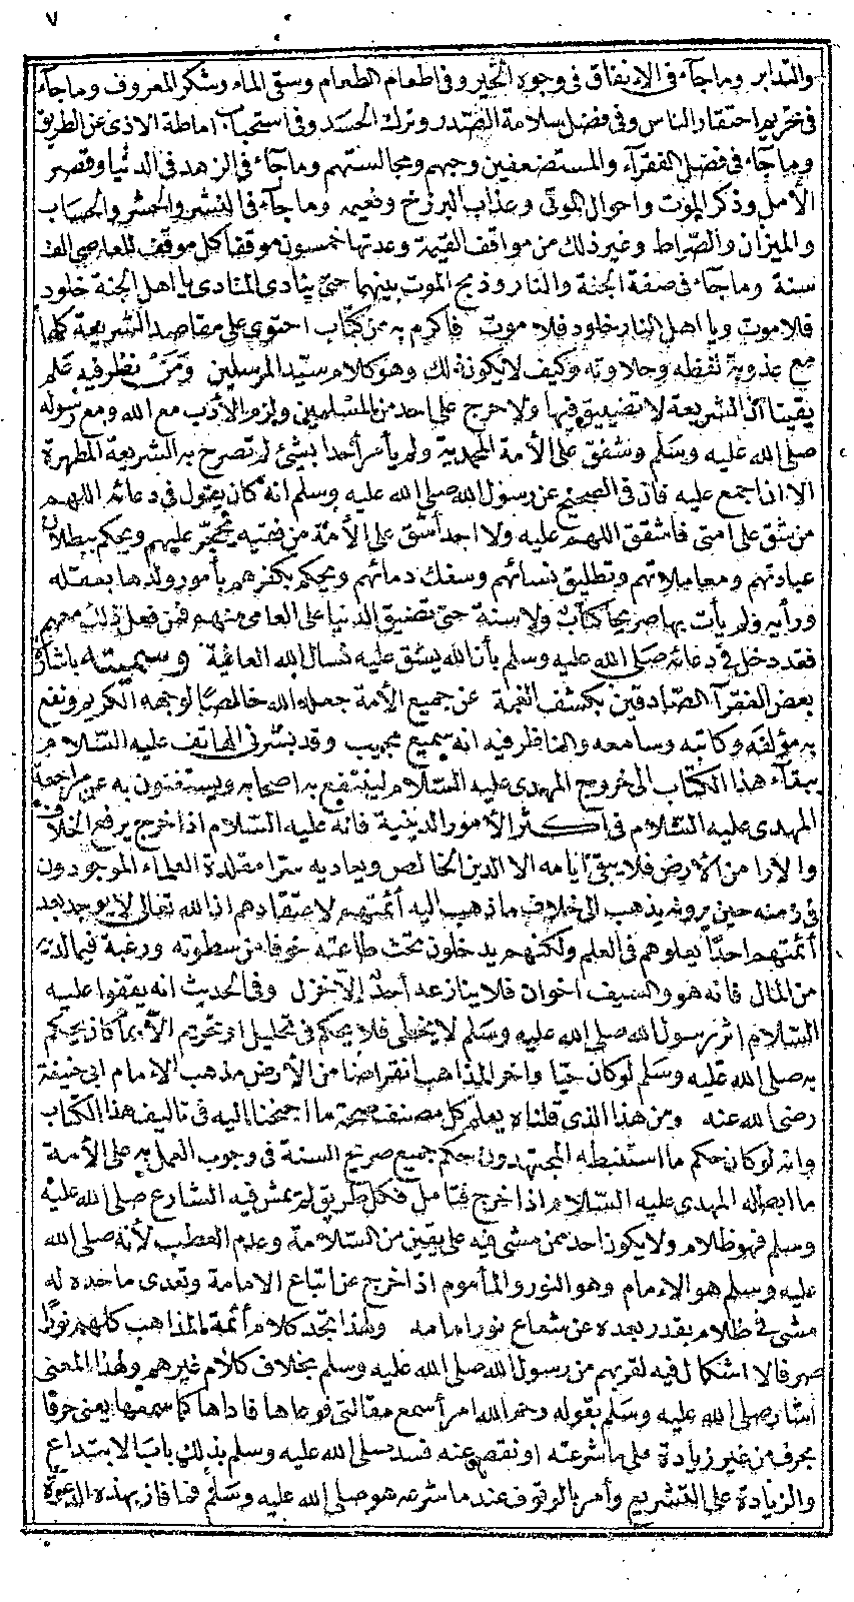 ٧
والتدابر وما جآء فى الانفاق فى وجوه الخير وفى اطعام الطعام وسقى المآء وشكر المعروف وما جآء
فى تحريم احتقار الناس وفى فضل سلامة الصدر وترك الحسد وفى استحباب اماطة الاذى عن الطريق
وما جآء فى فضل الفقرآء والمستضعفين وحبهم ومجالستهم وما جآء فى الزهد فى الدنيا وقصر
الأمل وذكر الموت واحوال الموتى وعذاب البرزخ ونعيمه وما جآء فى النشر والحشر والحساب
والميزان والصراط وغير ذلك من مواقف القيمة وعدتها خمسون موقفا كل موقف للعاصى الف
سنة وما جآء فى صفة الجنة والنار وذبح الموت بينهما حتى ينادى المنادى يا اهل الجنة خلود
فلا موت ويا اهل النار خلود فلا موت فاكرم به من كتاب احتوى على مقاصد الشريعة كلها
مع عذوبة لفظه وحلاوته وكيف لا يكون ذلك وهو كلام سيد المرسلين ومن نظر فيه علم
يقينا ان الشريعة لا تضييق فيها ولا حرج على احد من المسلمين ولزم الأدب مع الله ومع رسوله
صلى الله عليه وسلم وشفق على الأمة المحمدية ولم يأمر أحدا بشئ لم تصرح به الشريعة المطهرة
الا اذا اجمع عليه فان فى الصحيح عن رسول الله صلى الله عليه وسلم انه كان يقول فى دعائه اللهم
من شق على امتى فاشقق اللهم عليه ولا اجد أشق على الأمة من فقيه يحجر عليهم ويحكم ببطلان
عباداتهم ومعاملاتهم وتطليق نسائهم وسفك دمائهم ويحكم بكفرهم بأمور ولدها بعقله
ورأيه ولم يأت بها صريحا كتاب ولا سنة حتى تضيق الدنيا على العامى منهم فمن فعل ذلك معهم
فقد دخل فى دعائه صلى الله عليه وسلم بأن الله يشق عليه نسال الله العافية وسميته باشارة
بعض الفقرآء الصادقين بكشف الغمة عن جميع الأمة جعله الله خالصا لوجهه الكريم ونفع
به مؤلفه وكاتبه وسامعه والناظر فيه انه سميع مجيب وقد بشرنى الهاتف عليه السلام
ببقآء هذا الكتاب الى خروج المهدى عليه السلام لينتفع به اصحابه ويستغنون به عن مراجعة
المهدى عليه السلام فى اكثر الأمور الدينية فانه عليه السلام اذا خرج يرفع الخلاف
والارا من الأرض فلا يبقى أيامه الا الدين الخالص ويعاديه سرا مقلدة العلماء الموجودون
فى زمنه حين يرونه يذهب الى خلاف ما ذهب اليه أئمتهم لاعتقادهم ان الله تعالى لا يوجد بعد
أئمتهم احدا يعلوهم فى العلم ولكنهم يدخلون تحت طاعته خوفا من سطوته ورغبة فيما لديه
من المال فانه هو والسيف اخوان فلا ينازعه أحد إلا خزل وفى الحديث انه يقفوا عليه
السلام اثر رسول الله صلى الله عليه وسلم لا يخطى فلا يحكم فى تحليل او تحريم الا بما كان يحكم
به صلى الله عليه وسلم لو كان حيا واخر المذاهب انقراضا من الأرض مذهب الامام ابى حنيفة
رضى الله عنه ومن هذا الذى قلناه يعلم كل مصنف صحة ما اجنحنا اليه فى تاليف هذا الكتاب
وانه لو كان حكم ما استنبطه المجتهدون حكم جميع صريح السنة فى وجوب العمل به على الأمة
ما ابطله المهدى عليه السلام اذا خرج فتأمل فكل طريق لم يمش فيه الشارع صلى الله عليه
وسلم فهو ظلام ولا يكون احد ممن مشى فيه على يقين من السلامة وعدم العطب لأنه صلى الله
عليه وسلم هو الامام وهو النور والمأموم اذا خرج عن اتباع الامامة وتعدى ما حده له
مشى فى ظلام بقدر بعده عن شعاع نور امامه ولهذا تجد كلام أئمة المذاهب كلهم نورا
صرفا لا اشكال فيه لقربهم من رسول الله صلى الله عليه وسلم بخلاف كلام غيرهم ولهذا المعنى
اشار صلى الله عليه وسلم بقوله رحم الله امرأ سمع مقالتى فوعاها فاداها كما سمعها يعنى حرفا
بحرف من غير زيادة على ما شرعته او نقص عنه فسد صلى الله عليه وسلم بذلك باب الابتداع
والزيادة على التشريع وأمر بالوقوف عند ما شرعه هو صلى الله عليه وسلم فما فاز بهذه الدعوة